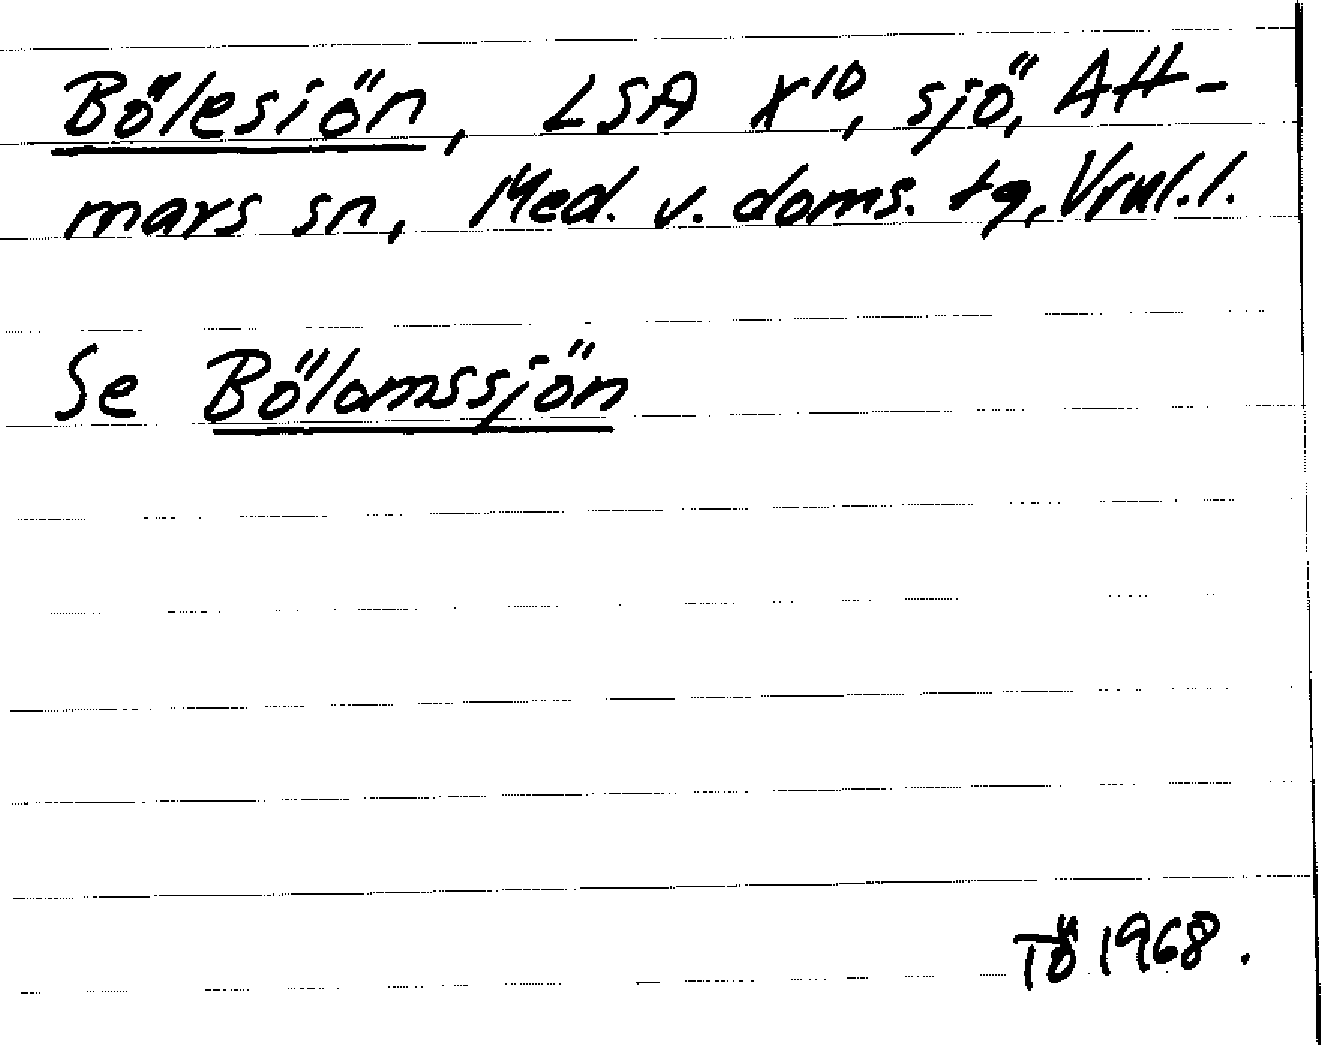 Bölesiön, LSA X¹⁰, sjö, Att-
mars sn, Med. v. doms. tg, Vrml.l.
Se Bölomssjön
TÖ 1968.